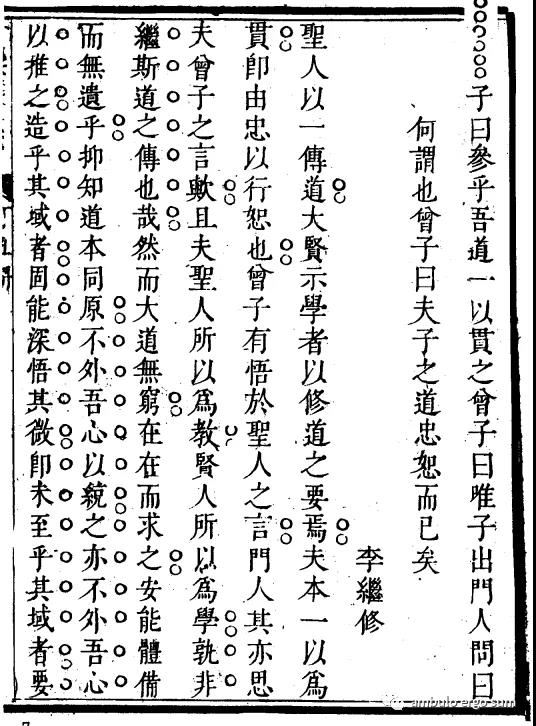 子曰參乎吾道一以貫之曾子曰唯子出門人問曰
何謂也曾子曰夫子之道忠恕而已矣
李繼修
聖人以一傳道大賢示學者以修道之要焉夫本一以爲
貫卽由忠以行恕也曾子有悟於聖人之言門人其亦思
夫曾子之言歟且夫聖人所以爲教賢人所以爲學孰非
繼斯道之傳也哉然而大道無窮在在而求之安能體備
而無遺乎抑知道本同原不外吾心以統之亦不外吾心
以推之造乎其域者固能深悟其微卽未至乎其域者要
ambulo ergo sum